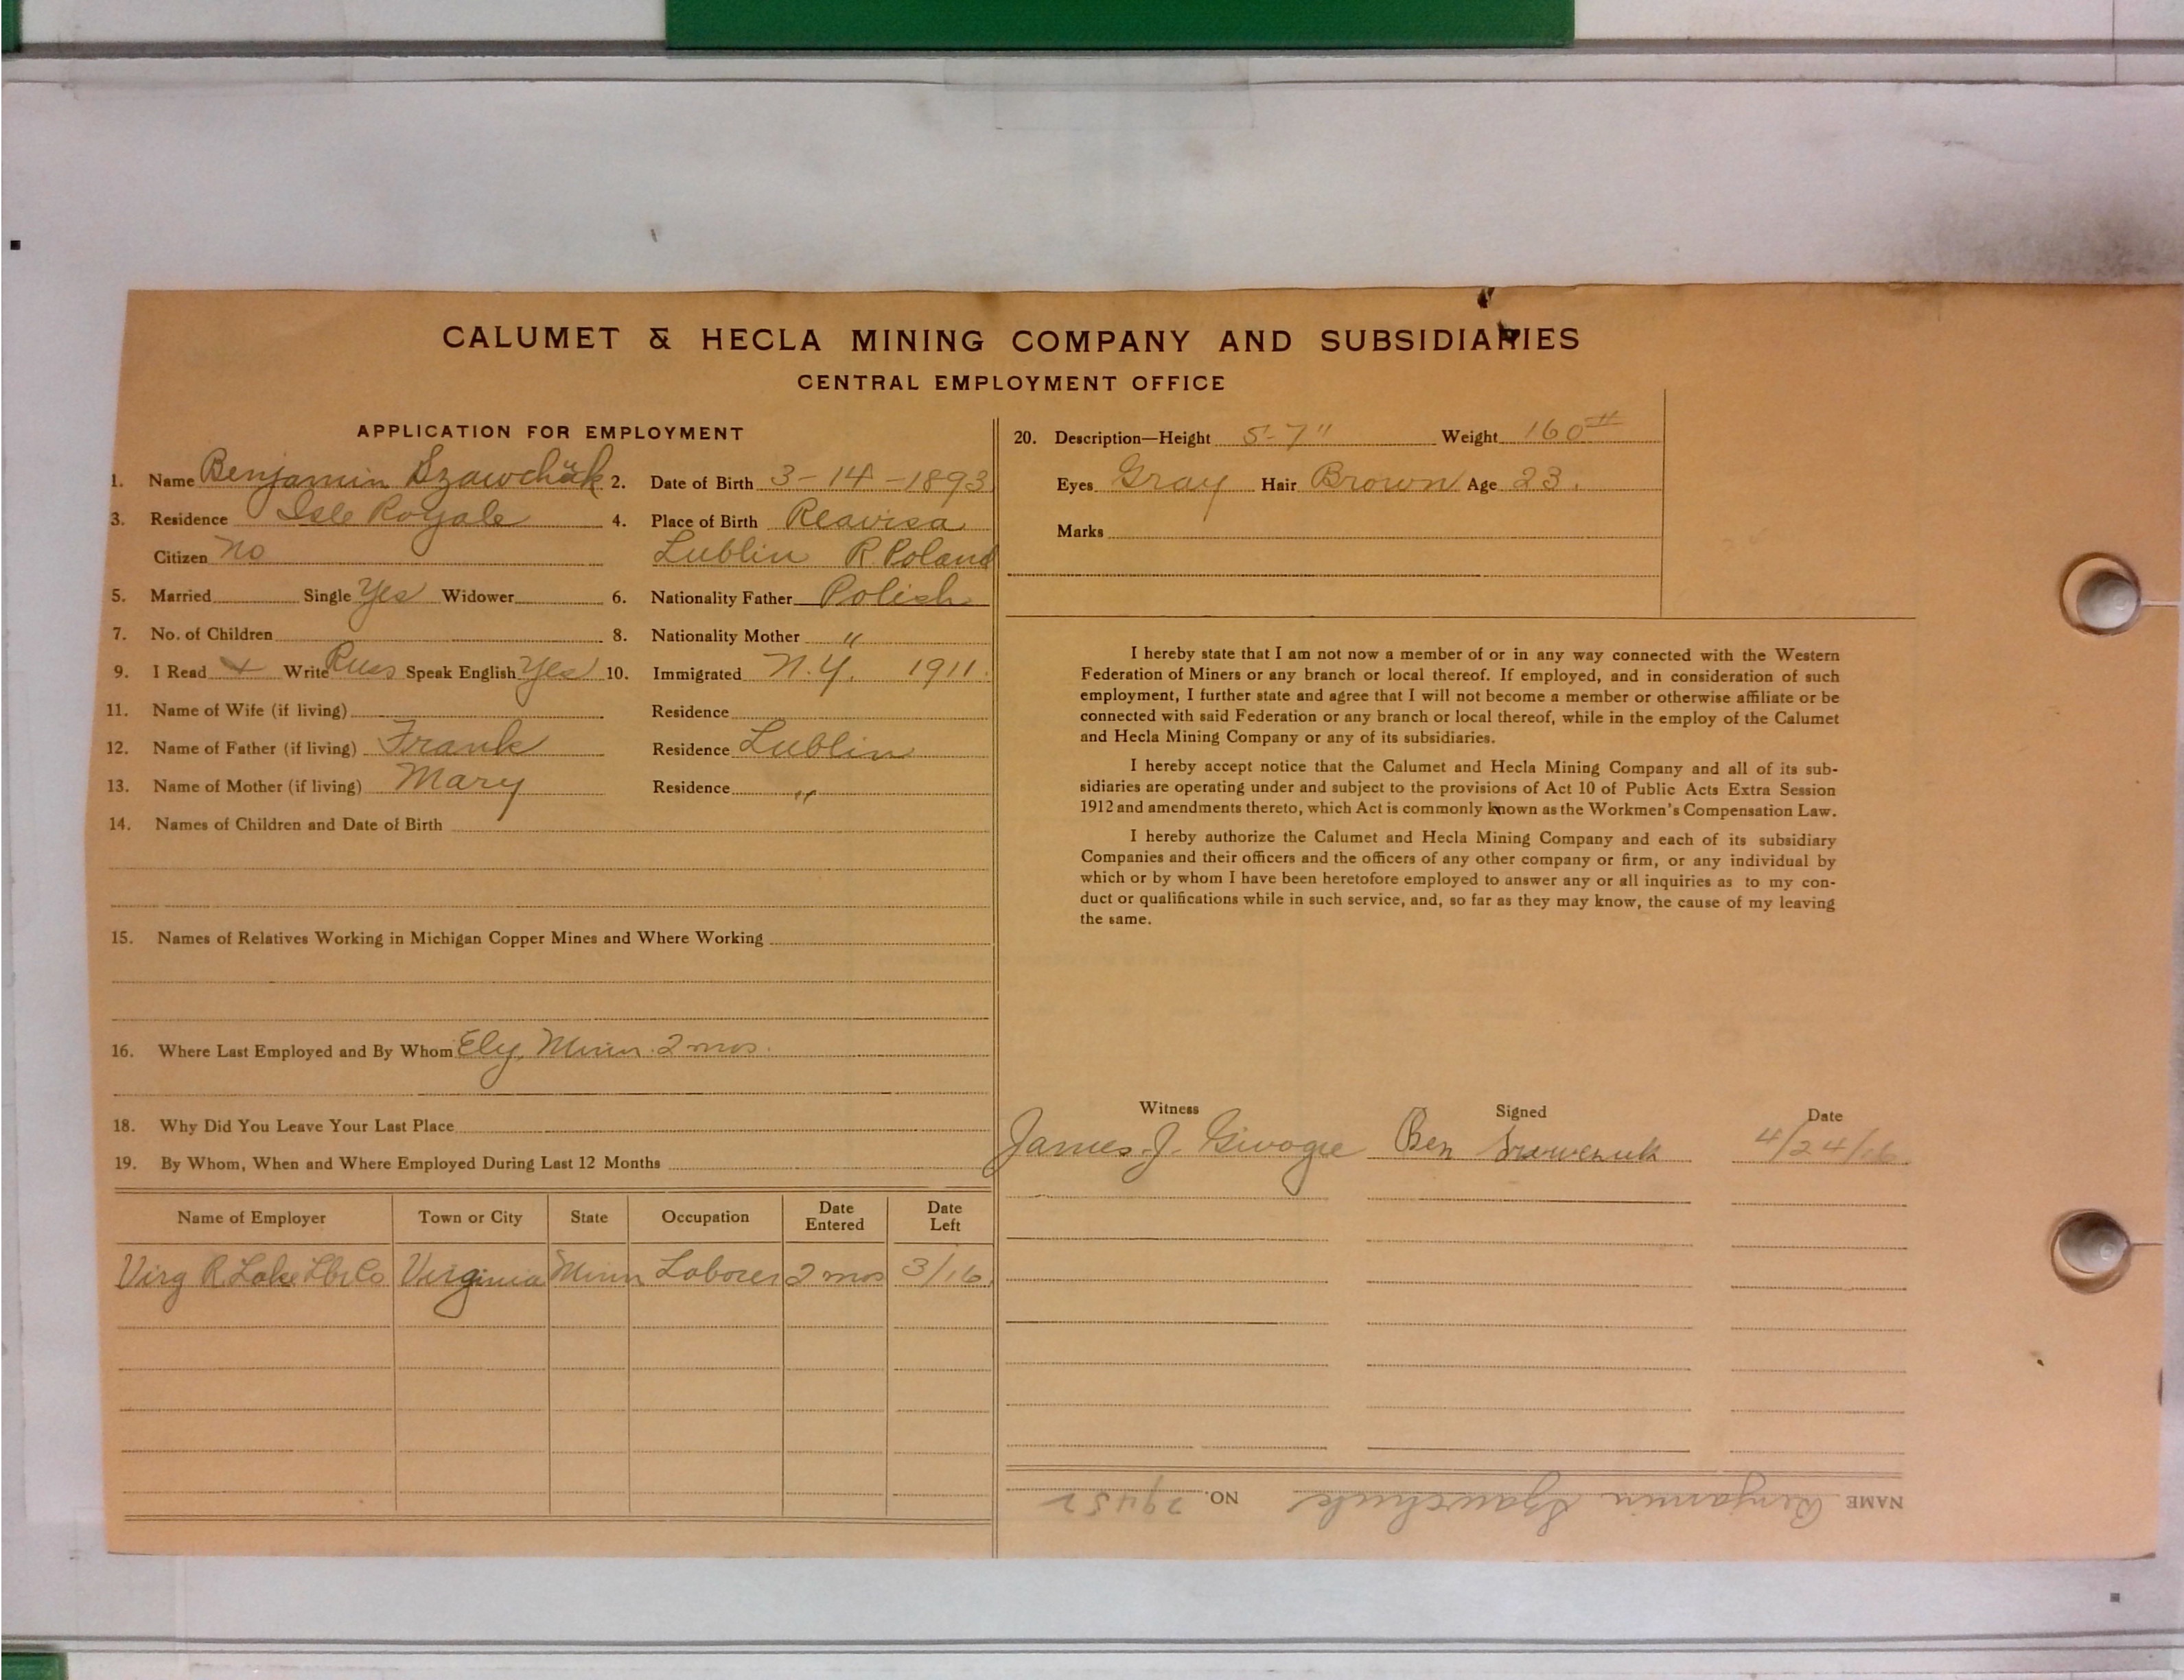 CALUMET & HECLA MINING COMPANY AND SUBSIDIARIES
CENTRAL EMPLOYMENT OFFICE
APPLICATION FOR EMPLOYMENT
1. Name Benjamin Szawchuk 2. Date of Birth 3-14-1893
3. Residence Isle Royale 4. Place of Birth
Citizen No Lublin R. Poland
5. Married Single Yes Widower 6. Nationality Father Polish
7. No. of Children 8. Nationality Mother "
9. I Read + Write Russ Speak English Yes 10. Immigrated N.Y. 1911.
11. Name of Wife (if living) Residence
12. Name of Father (if living) Frank Residence Lublin
13. Name of Mother (if living) Mary Residence "
14. Names of Children and Date of Birth
15. Names of Relatives Working in Michigan Copper Mines and Where Working
16. Where Last Employed and By Whom Ely, Minn. 2 mos.
18. Why Did You Leave Your Last Place
19. By Whom, When and Where Employed During Last 12 Months
Name of Employer Town or City State Occupation Date Entered Date Left
Virg R. Lake Lbr Co Virginia Minn Laborer 2 mos 3/16.
20. Description—Height 5-7" Weight 160#
Eyes Gray Hair Brown Age 23.
Marks
I hereby state that I am not now a member of or in any way connected with the Western
Federation of Miners or any branch or local thereof. If employed, and in consideration of such
employment, I further state and agree that I will not become a member or otherwise affiliate or be
connected with said Federation or any branch or local thereof, while in the employ of the Calumet
and Hecla Mining Company or any of its subsidiaries.
I hereby accept notice that the Calumet and Hecla Mining Company and all of its sub-
sidiaries are operating under and subject to the provisions of Act 10 of Public Acts Extra Session
1912 and amendments thereto, which Act is commonly known as the Workmen's Compensation Law.
I hereby authorize the Calumet and Hecla Mining Company and each of its subsidiary
Companies and their officers and the officers of any other company or firm, or any individual by
which or by whom I have been heretofore employed to answer any or all inquiries as to my con-
duct or qualifications while in such service, and, so far as they may know, the cause of my leaving
the same.
Witness Signed Date
James J. Ben 4/24/16
NAME Benjamin Szawchuk NO. 29452